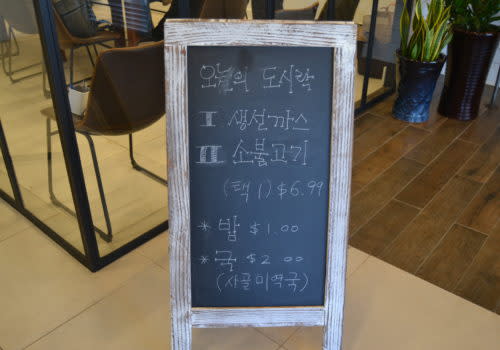 오늘의 도시락
I 생선까스
II 소불고기
(택 1) $6.99
* 밥 $1.00
* 국 $2.00
(사골미역국)